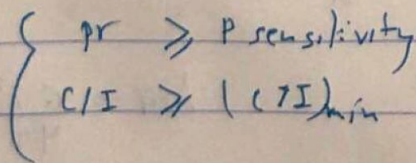 pr ≥ P sensitivity
C/I ≥ (C/I)min